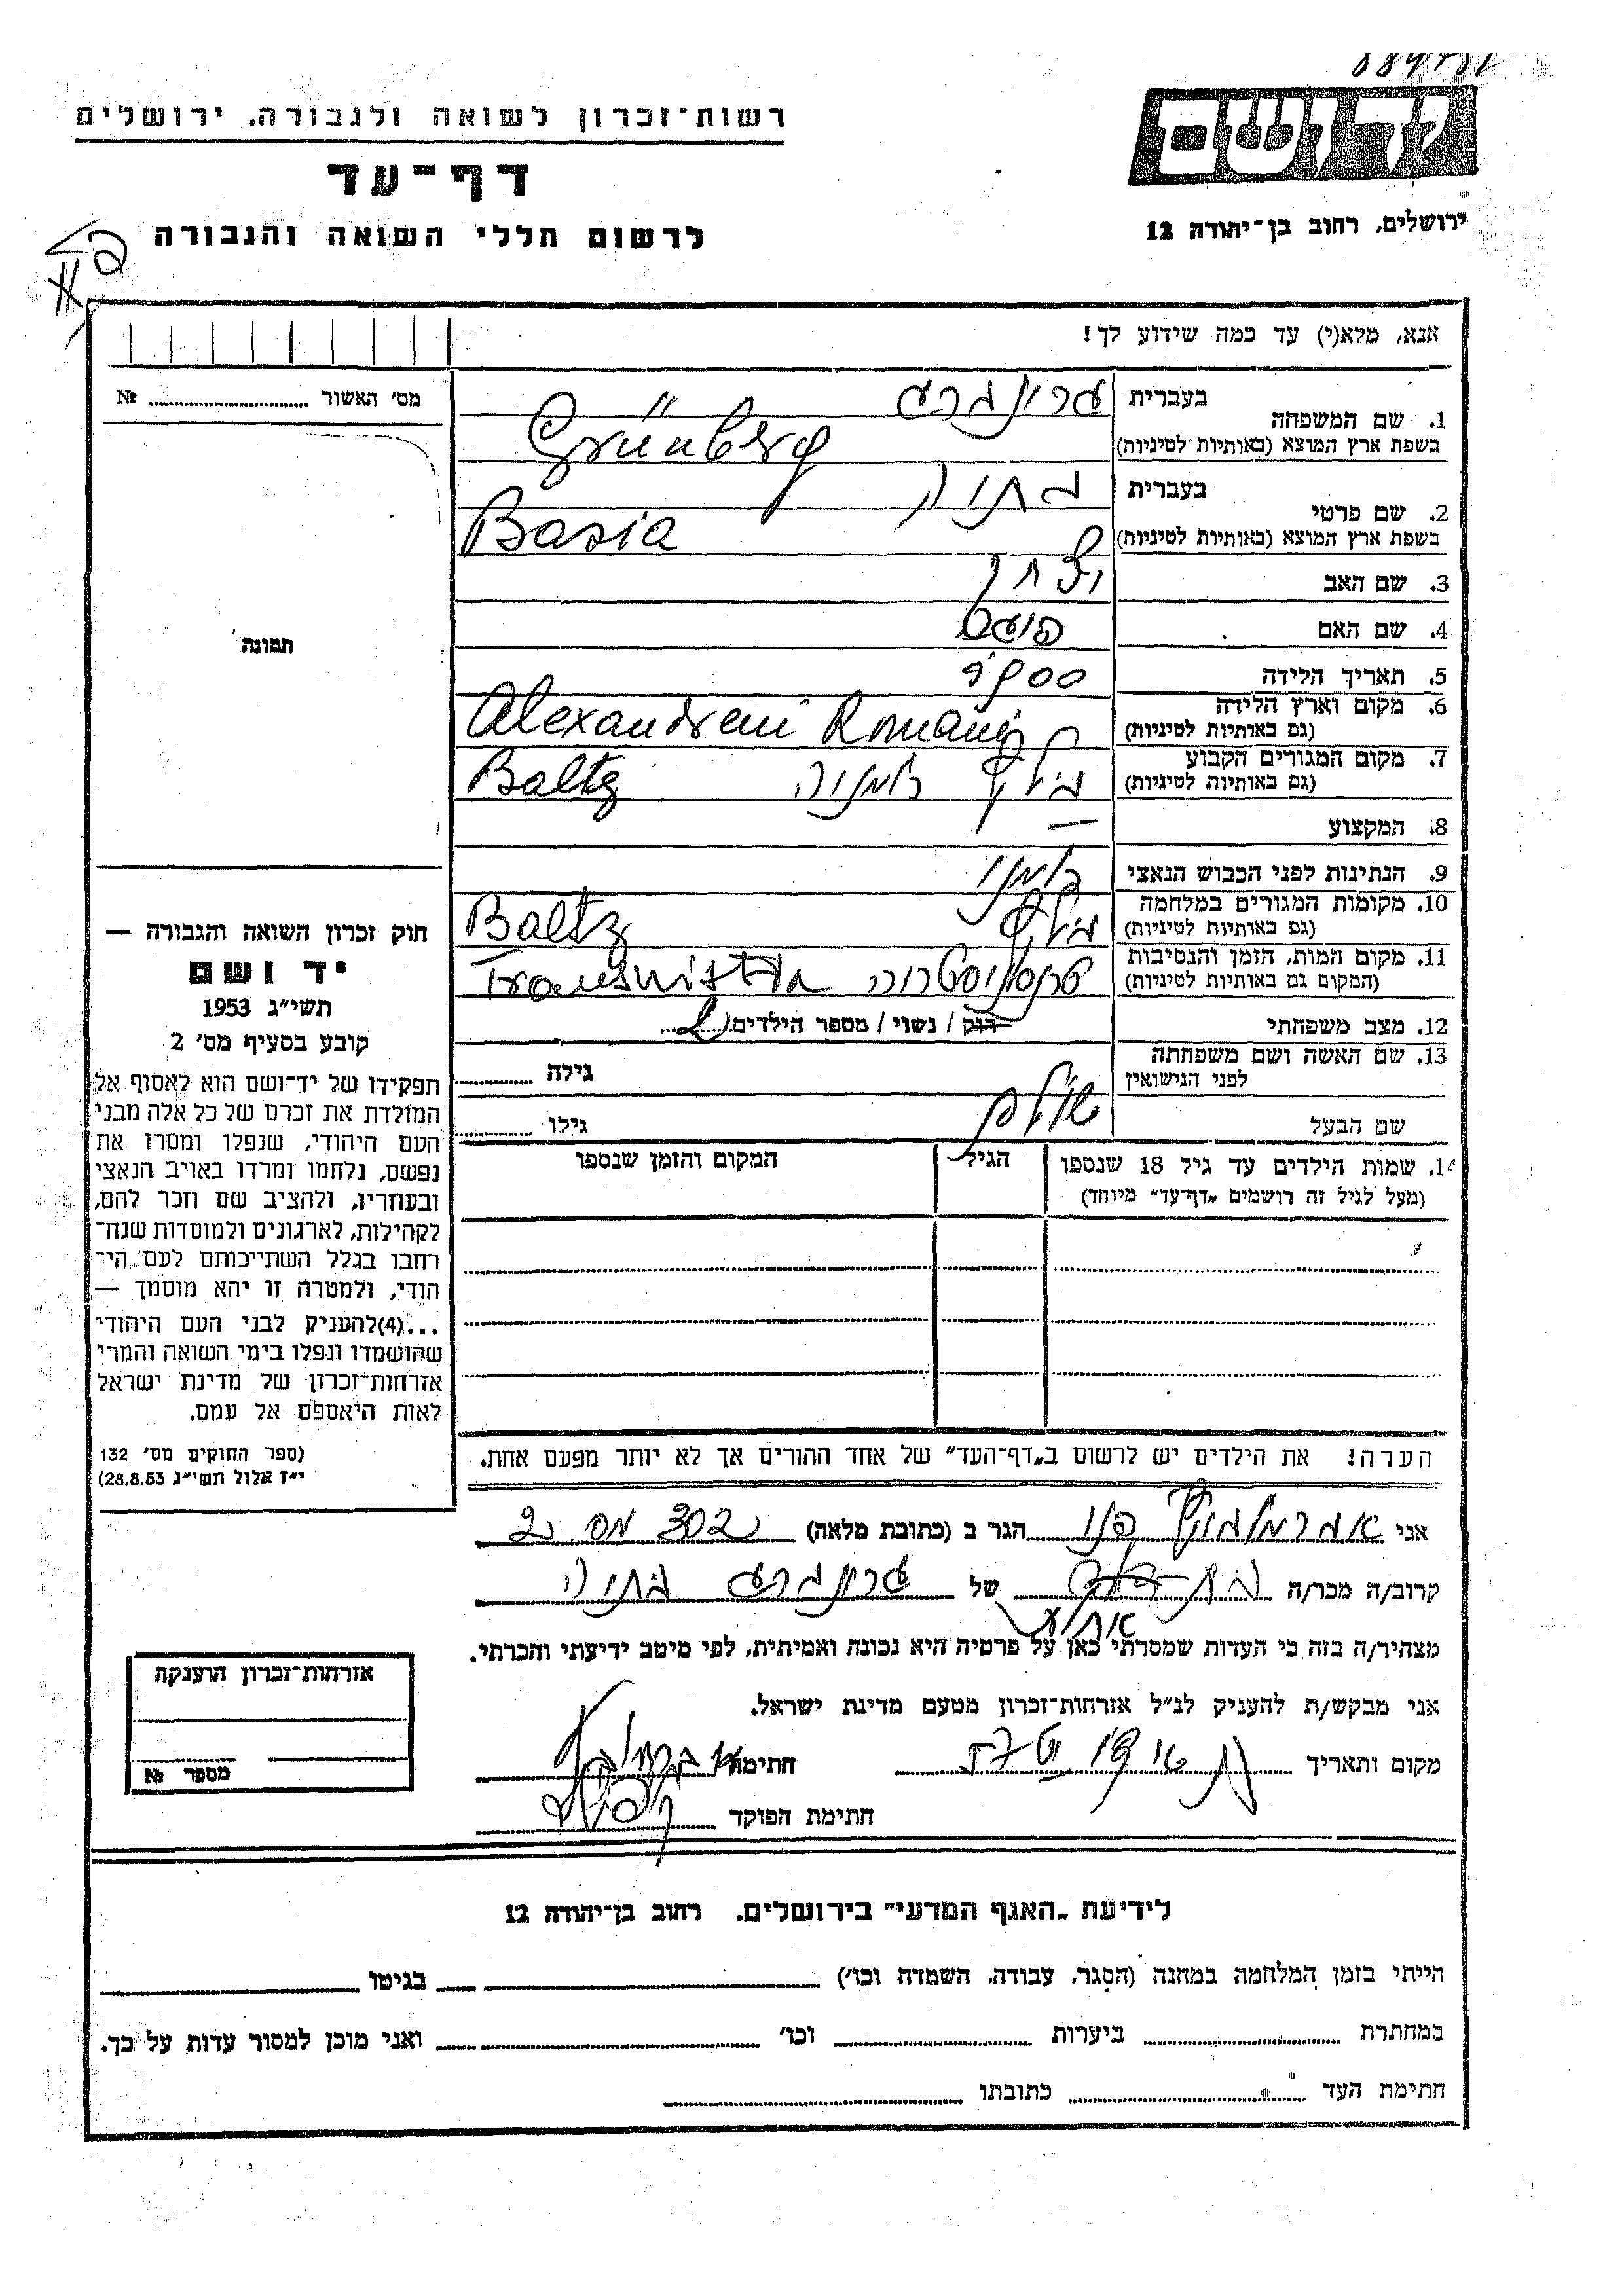 רשות-זכרון לשואה ולגבורה, ירושלים
דף-עד
לרשום חללי השואה והגבורה
ידושם
ירושלים, רחוב בן-יהודה 12
אנא, מלא(י) עד כמה שידוע לך!
מס' האשור № ........
תמונה
1. שם המשפחה בעברית גרונברג
בשפת ארץ המוצא (באותיות לטיניות) Grünberg
2. שם פרטי בעברית בתיה
בשפת ארץ המוצא (באותיות לטיניות) Basia
3. שם האב יצחק
4. שם האם
5. תאריך הלידה 1900
6. מקום וארץ הלידה (גם באותיות לטיניות) Alexandreni
7. מקום המגורים הקבוע (גם באותיות לטיניות) בלץ רומניה Baltz
8. המקצוע —
9. הנתינות לפני הכבוש הנאצי רומני
10. מקומות המגורים במלחמה (גם באותיות לטיניות) בלץ Baltz
11. מקום המות, הזמן והנסיבות (המקום גם באותיות לטיניות) טרנסניסטריה
12. מצב משפחתי רווק / נשוי / מספר הילדים 2
13. שם האשה ושם משפחתה לפני הנישואין גילה
שם הבעל גילו
14. שמות הילדים עד גיל 18 שנספו
(מעל לגיל זה רושמים "דף-עד" מיוחד)
הגיל
המקום והזמן שנספו
הערה! את הילדים יש לרשום ב"דף-העד" של אחד ההורים אך לא יותר מפעם אחת.
חוק זכרון השואה והגבורה —
יד ושם
תשי"ג 1953
קובע בסעיף מס' 2
תפקידו של יד-ושם הוא לאסוף אל
המולדת את זכרם של כל אלה מבני
העם היהודי, שנפלו ומסרו את
נפשם, נלחמו ומרדו באויב הנאצי
ובעוזריו, ולהציב שם וזכר להם,
לקהילות, לארגונים ולמוסדות שנח-
רחבו בגלל השתייכותם לעם הי-
הודי, ולמטרה זו יהא מוסמך —
...(4)להעניק לבני העם היהודי
שהושמדו ונפלו בימי השואה והמרי
אזרחות-זכרון של מדינת ישראל
לאות היאספם אל עמם.
(ספר החוקים מס' 132
י"ז אלול תשי"ג 28.8.53)
אני אברמוביץ הגר ב (כתובת מלאה)
קרוב/ה מכר/ה של גרונברג בתיה
אחות
מצהיר/ה בזה כי העדות שמסרתי כאן על פרטיה היא נכונה ואמיתית, לפי מיטב ידיעתי והכרתי.
אני מבקש/ת להעניק לנ"ל אזרחות-זכרון מטעם מדינת ישראל.
מקום ותאריך חתימה
חתימת הפוקד
אזרחות-זכרון הוענקה
מספר №
לידיעת "האגף המדעי" בירושלים. רחוב בן-יהודה 12
הייתי בזמן המלחמה במחנה (הסגר, עבודה, השמדה וכו') בגיטו
במחתרת ביערות וכו' ואני מוכן למסור עדות על כך.
חתימת העד כתובתו